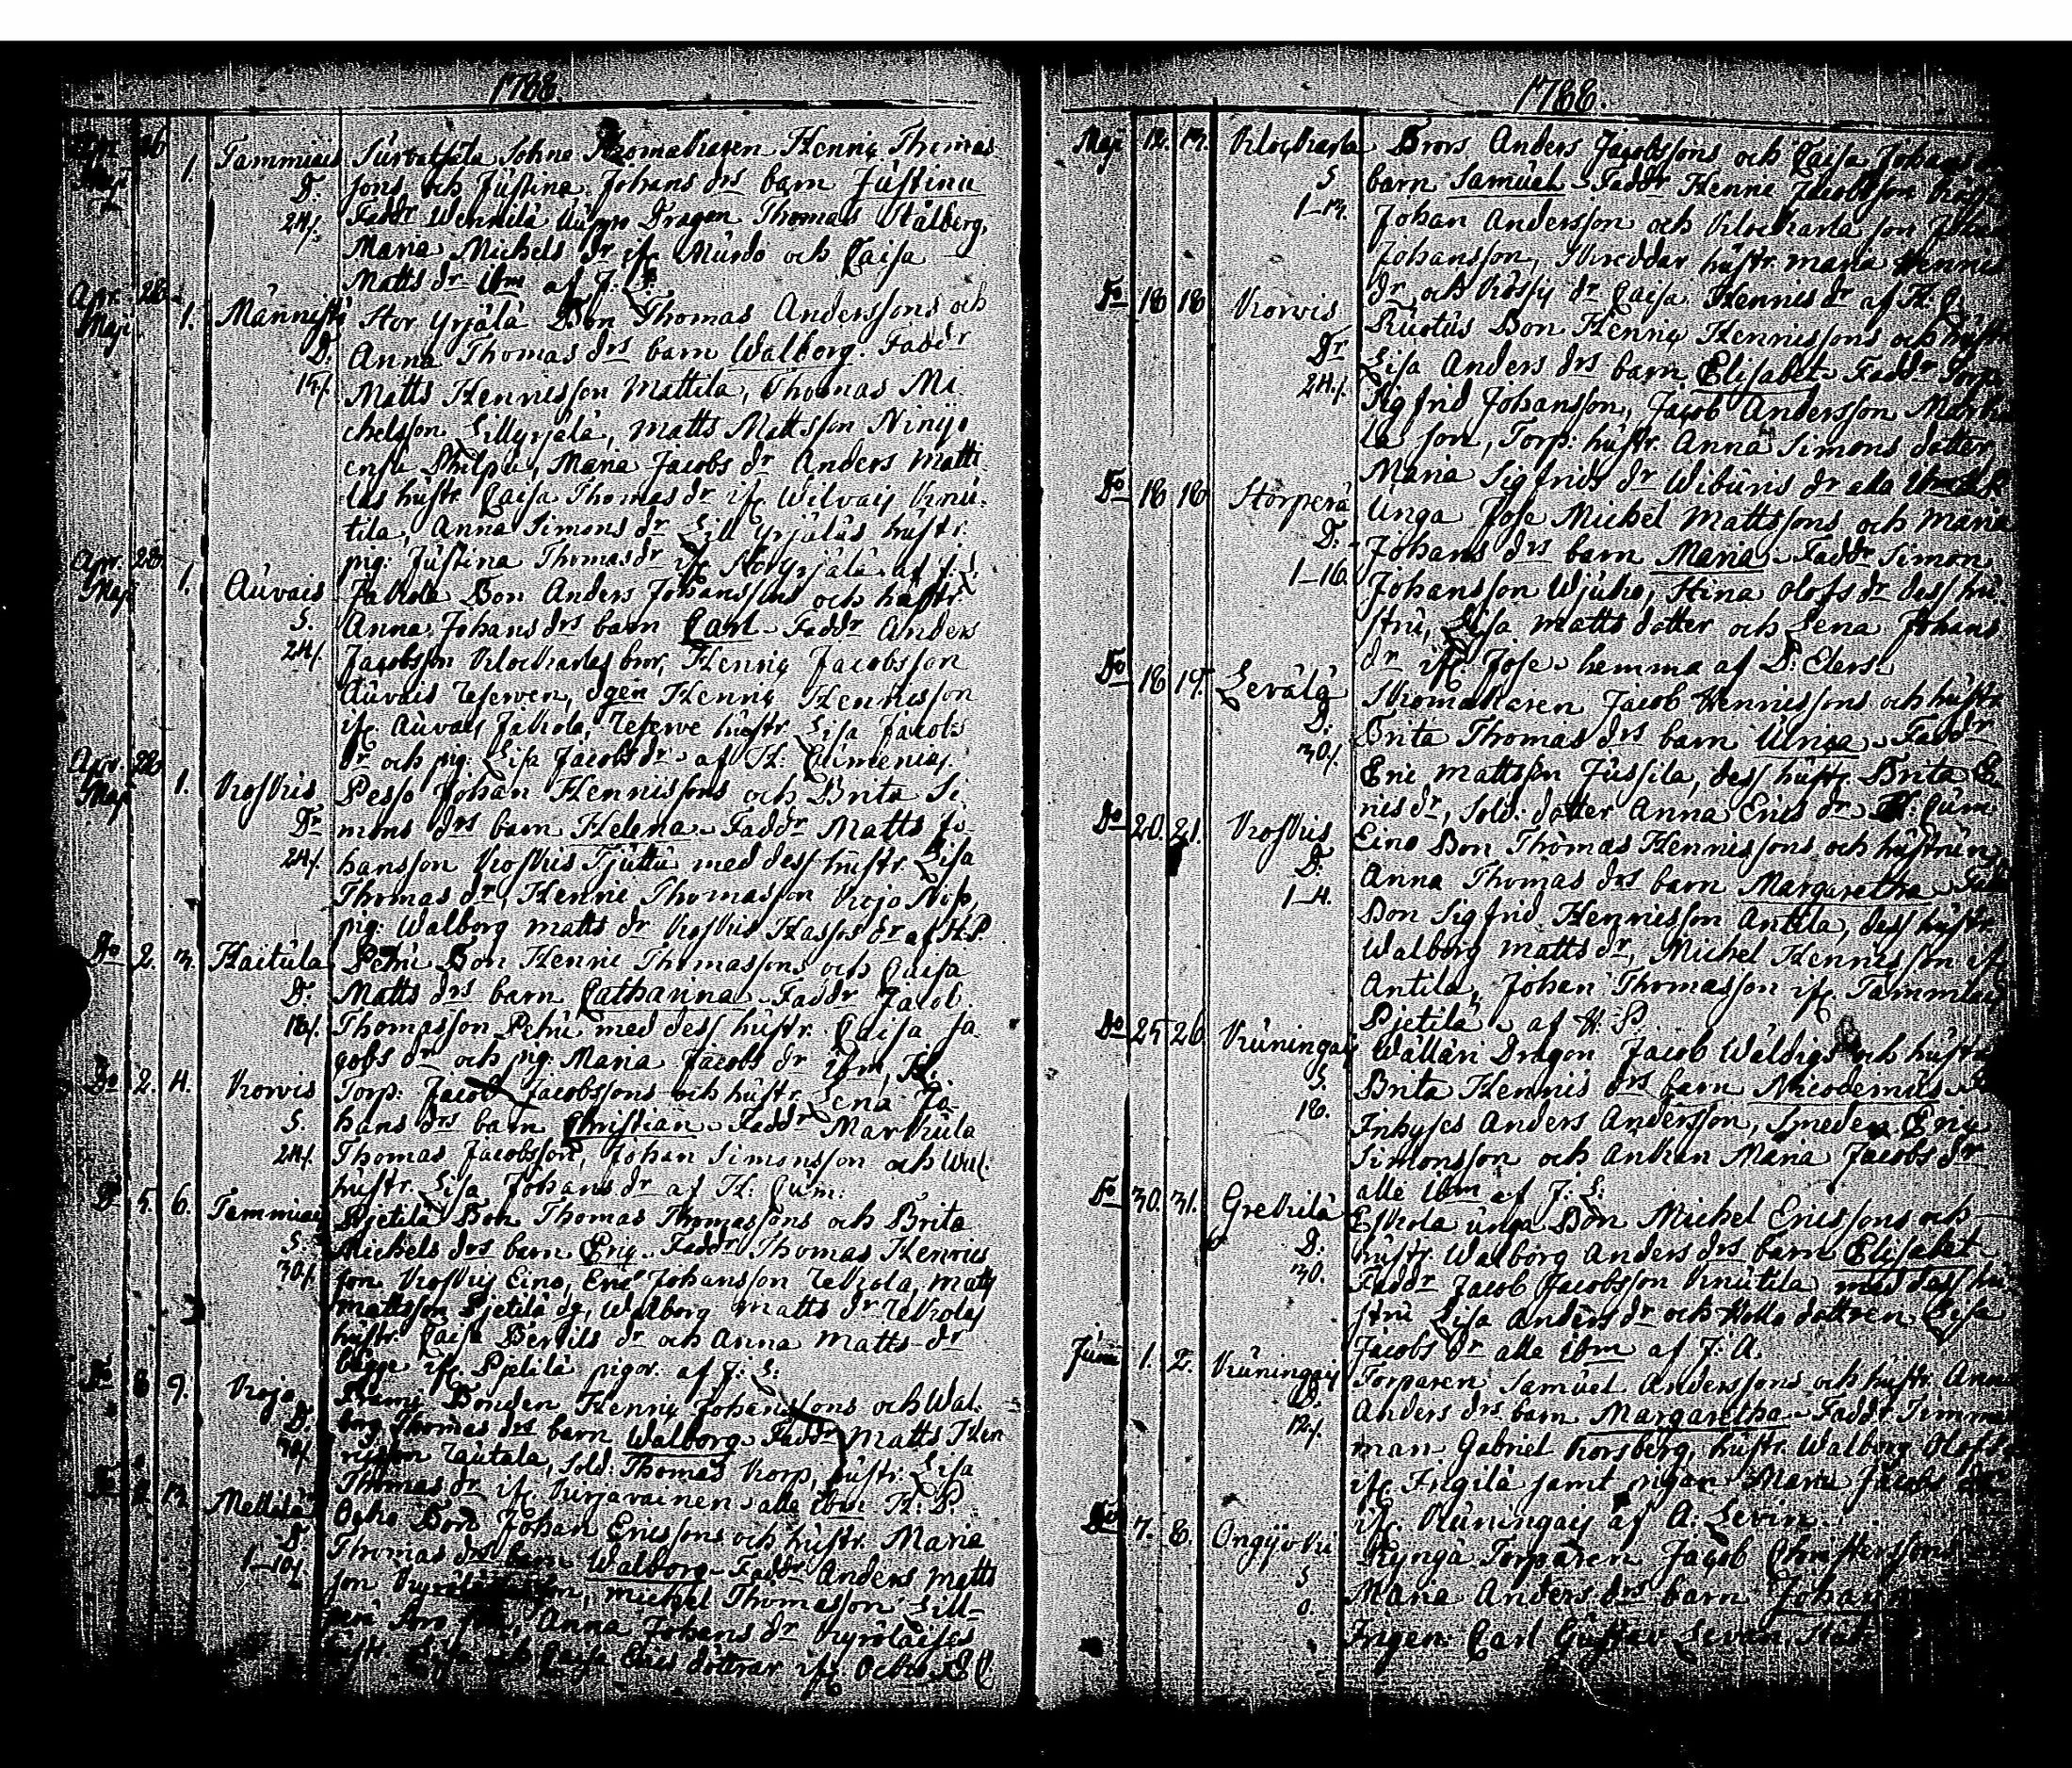 1788.
Apr. 26 Maji 1. Tammiais Survatsala Sohne Skomakaren Henric Thomas
D. sons och Justina Johans drs barn Justina
24/. Faddr Wennilä Uusipre Dragon Thomas Stålberg,
Maria Michels dr ifr. Murdo och Caisa
Matts dr ibm af J: L:
Apr. 28 Maji 1. Männistö Stor Yrjälä Bon Thomas Anderssons och
D. Anna Thomas drs barn Walborg. Faddr
Matts Henricsson Mattila, Thomas Mi-
chelsson Lillyrjälä, Matts Mattsson Ninijo
Philpu, Maria Jacobs dr Anders Matti-
las hustr. Caisa Thomas dr ifr. Wilvais Knu-
tila, Anna Simons dr Lill Yrjäläs hustr.
pig: Justina Thomas dr ifr Stor Yrjälä af J: L
Apr. 28 Maji 1. Auvais Jakola Bon Anders Johanssons och hustr.
S. Anna Johans drs barn Carl. Faddr Anders
24/. Jacobsson Klockarlas bror, Henric Jacobsson
Auvais Reserven, dgen Henric Henricsson
ifr. Auvais Jakola, Reserve hustr. Lisa Jacobs
dr och pig: Lisa Jacobs dr af H: Climenius.
Apr. 28 Maji 1. Koskis Pesso Johan Henricssons och Brita Si-
Dr mons drs barn Helena. Faddr Matts Jo-
24/. hansson Koskis Tjuttu med dess hustr. Lisa
Thomas dr, Henric Thomasson Krojo Nisso,
pig: Walborg Matts dr Koskis Hassos dr af H.P.
Do 2. 3. Haitula Petru Bon Henric Thomassons och Caisa
D. Matts drs barn Catharina. Faddr Jacob
18/. Thomasson Petru med dess hustr. Caisa Ja-
cobs dr och pig: Maria Jacobs dr ibm, H:
Do 2. 4. Korvis Torp: Jacob Jacobssons och hustr. Lena Jo-
S. hans drs barn Christian. Faddr Markula
24/. Thomas Jacobsson, Johan Simonsson och
hustr. Lisa Johans dr af H: Cum:
Do 5. 6. Tammiais Pjetilä Bon Thomas Thomassons och Brita
S. Michels drs barn Eric. Faddr Thomas Henrics
30/. son Koskis Eino, Eric Johansson Rekola, Matts
Mattsson Pjetilä dg, Walborg Matts dr Rekolas
hustr. Caisa Bertils dr och Anna Matts dr
bägge ifr. Pjetilä pigor. af J: L:
Do 8 9. Krojo Bonden Henric Johanssons och Wal-
D. borg Thomas drs barn Walborg. Faddr Matts Hen
30/. ricsson Rautala, Sold: Thomas Korp, hustr: Lisa
Thomas dr ifr. Kurjavainen. alla ibm H: P.
Mellilä Ocho Bon Johan Ericssons och hustr. Maria
D. Thomas drs barn Walborg. Faddr Anders Matts
1-10/. son, Michel Thomasson Lill-
Anna Johans dr Kyröläises
hustr. Lisa och Caisa Erics döttrar ifr. Ocho
1788.
Maji 12. 13. Klockarla Brors Anders Jacobssons och Caisa Johans
S barn Samuel. Faddr Henric Jacobsson
1-13. Johan Andersson och Klockarla son Johan
Johansson, Skreddar hustr. Maria Henrics
dr och dr Caisa Henrics dr af H. C.
Do 18 18 Korvis Ruotus Bon Henric Henricssons och hustr
Dr Lisa Anders drs barn Elisabet. Faddr Torp
24/. Sigfrid Johansson, Jacob Andersson Marku
la son, Torp: hustr. Anna Simons dotter,
Maria Sigfrids dr Wiburis dr alla ibm
Do 18 18 Storperä Unga Jose Michel Mattssons och Maria
D. Johans drs barn Maria. Faddr Simon
1-16. Johansson Wjuho, Stina Olofs dr dess hu-
stru, Lisa Matts dotter och Lena Johans
dr ifr Jose. hemma af D: Elers.
Do 18 19. Levälä Skomakaren Jacob Henricssons och hustr
D. Brita Thomas drs barn Ulrica. Faddr
30/. Eric Mattsson Jussila, dess hustr. Brita E
rics dr, Sold. dotter Anna Erics dr H: Cum
Do 20. 21. Koskis Eino Bon Thomas Henricssons och hustrun
D. Anna Thomas drs barn Margaretha. Fadd
1-4. Bon Sigfrid Henricsson Antila, dess hustr.
Walborg Matts dr, Michel Henricsson ifr
Antila, Johan Thomasson ifr. Tammiais
Pjetilä. af H. P.
Do 25 26. Kuningais Wälläri Dragon Jacob Wäldigs och hustr
S. Brita Henrics drs barn Nicodemus.
18. Inhyses Anders Andersson, Smeden Eric
Simonsson och Ankan Maria Jacobs dr
alle ibm af J: L:
Do 30. 31. Grekilä Eskola unga Bon Michel Ericssons och
D. hustr. Walborg Anders drs barn Elisabet
30. Faddr Jacob Jacobsson Knutila med dess hu
stru Lisa Anders dr och Hollo dottren Lisa
Jacobs dr alla ibm af J: A.
Juni 1. 2. Kuningais Torparen Samuel Anderssons och hustr. Anna
D. Anders drs barn Margaretha. Faddr Timmer
12/. man Gabriel Korsberg, hustr. Walborg Olofs
ifr. Frigilä samt pigan Maria Jacobs dr
ifr. Kuningais af A: Levin.
Do 7. 8. Ongijoki Kyngä Torparen Jacob Christerssons
S Maria Anders drs barn Johan
0. Ingen. Carl Gustav Leven